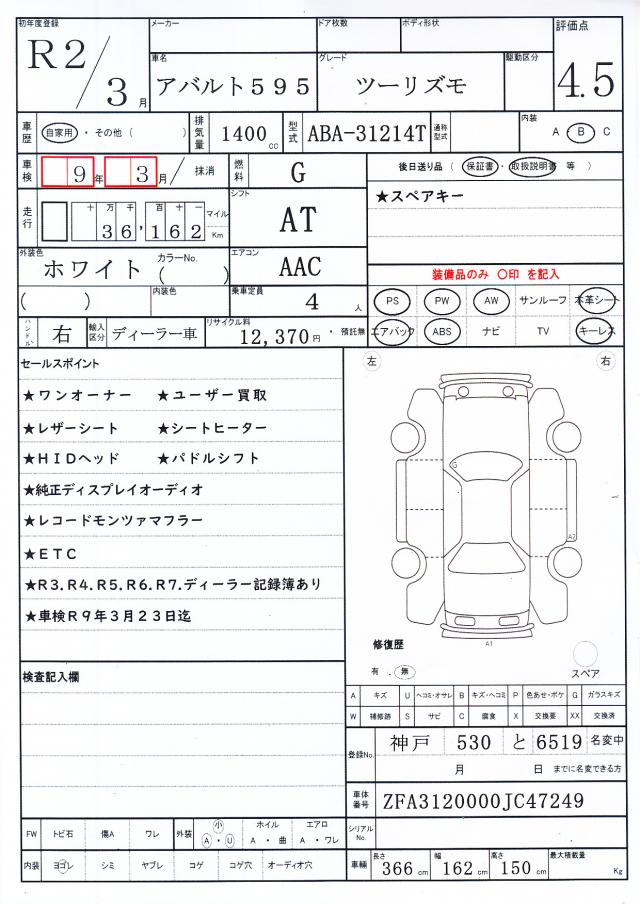 初年度登録 R2/3月
メーカー
ドア枚数
ボディ形状
評価点 4.5
車名 アバルト595
グレード ツーリズモ
駆動区分
車歴 自家用・その他( )
排気量 1400cc
型式 ABA-31214T
通称型式
内装 A・B・C
車検 9年3月/抹消
燃料 G
後日送り品(保証書・取扱説明書 等)
走行 十万千百十一 36,162 マイル Km
シフト AT
★スペアキー
外装色 ホワイト カラーNo.( )
エアコン AAC
装備品のみ 〇印 を記入
( ) 内装色
乗車定員 4人
PS PW AW サンルーフ 本革シート
ハンドル 右
輸入区分 ディーラー車
リサイクル料 12,370円・預託無
エアバック ABS ナビ TV キーレス
セールスポイント
左 右
★ワンオーナー ★ユーザー買取
★レザーシート ★シートヒーター
★HIDヘッド ★パドルシフト
G
★純正ディスプレイオーディオ
★レコードモンツァマフラー
A2
★ETC
★R3.R4.R5.R6.R7.ディーラー記録簿あり
★車検R9年3月23日迄
A1
修復歴
有・無
スペア
検査記入欄
A キズ U ヘコミ・オサレ B キズ・ヘコミ P 色あせ・ボケ G ガラスキズ
W 補修跡 S サビ C 腐食 X 交換要 XX 交換済
登録No. 神戸 530 と 6519 名変中
月 日 までに名変できる方
車体番号 ZFA3120000JC47249
FW トビ石 傷A ワレ 外装 小 A・U ホイル A・曲 エアロ A・ワレ
シリアルNo.
内装 ヨゴレ シミ ヤブレ コゲ コゲ穴 オーディオ穴
車輛 長さ 366cm 幅 162cm 高さ 150cm 最大積載量 Kg